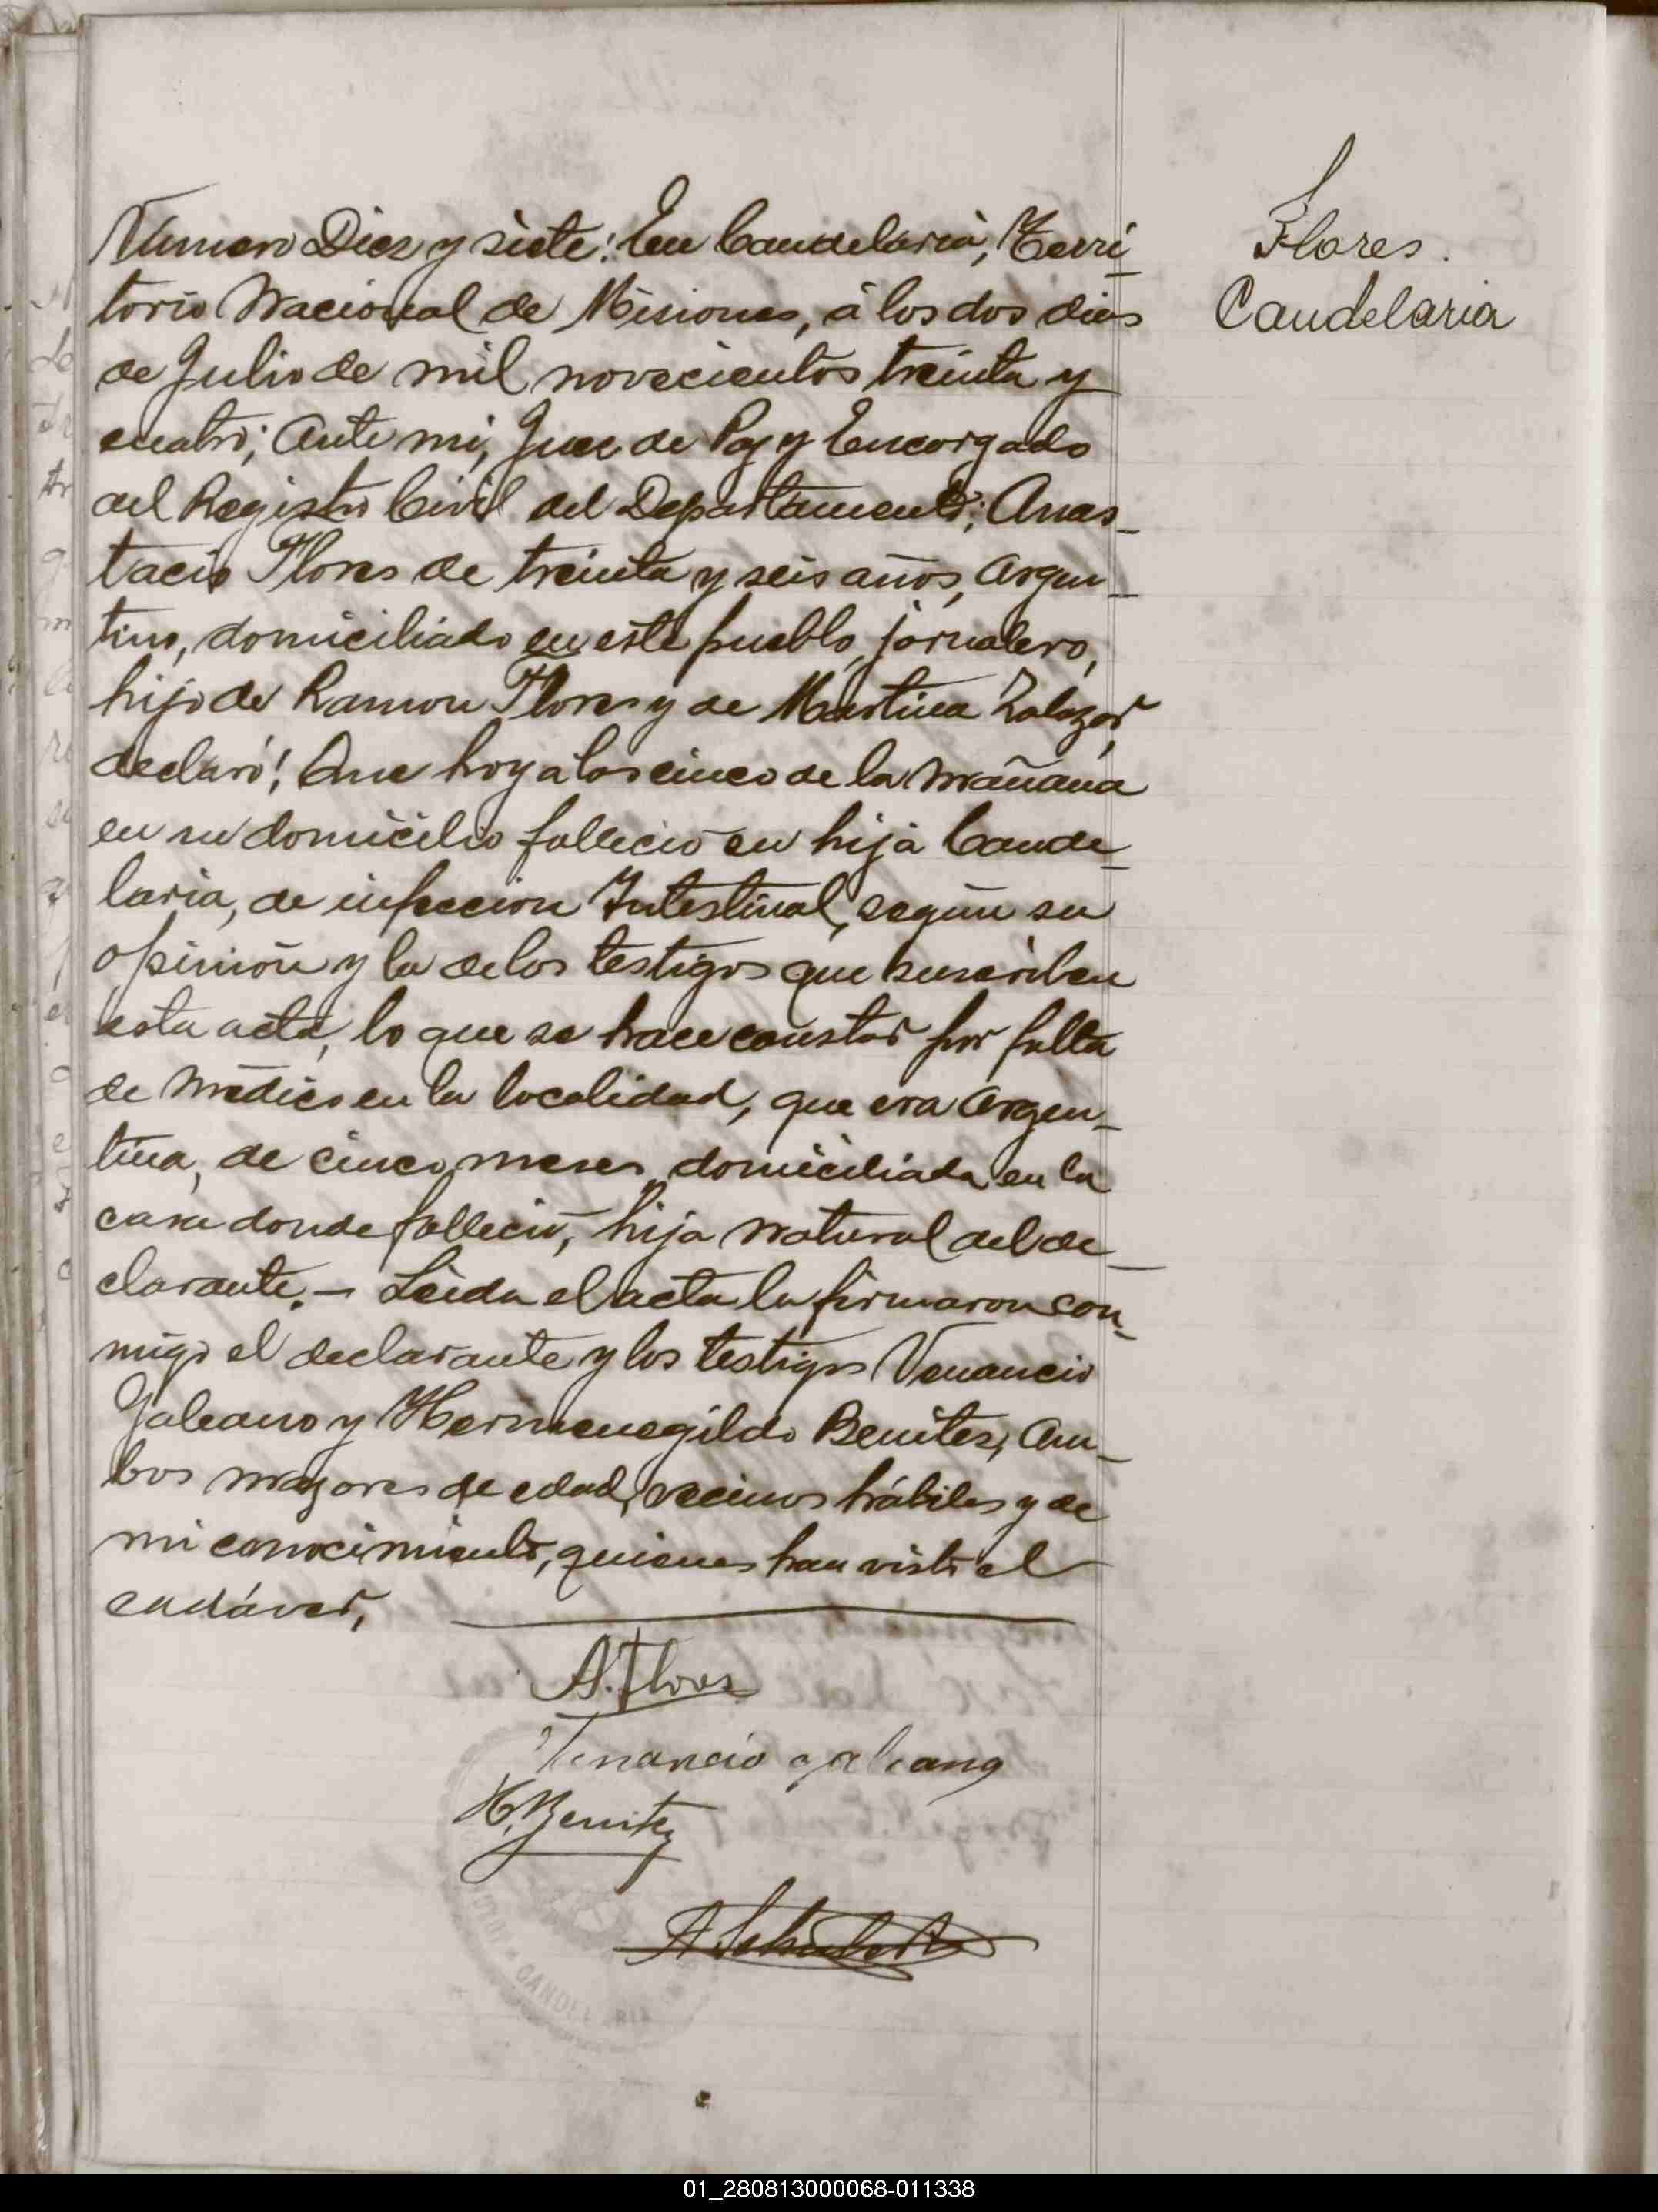 Flores.
Candelaria
Número Diez y siete: En Candelaria, Terri_
torio Nacional de Misiones, á los dos dias
de Julio de mil novecientos treinta y
cuatro; Ante mi, Juez de Paz y Encargado
del Registro Civil del Departamento; Anas_
tacio Flores de treinta y seis años, Argen_
tino, domiciliado en este pueblo, jornalero,
hijo de Ramon Flores y de Martina Zalazar,
declaró: Que hoy a las cinco de la mañana
en su domicilio falleció su hija Cande_
laria, de infeccion Intestinal, según su
opinión y la de los testigos que suscriben
esta acta, lo que se hace constar por falta
de médico en la localidad, que era Argen_
tina, de cinco meses, domiciliada en la
casa donde falleció, hija natural del de_
clarante.- Leida el acta la firmaron con_
migo el declarante y los testigos Venancio
Galeano y Hermenegildo Benitez, Am_
bos mayores de edad, vecinos hábiles y de
mi conocimiento, quienes han visto el
cadáver,
A. Flores
Venancio galeano
H. Benitez
A Schubert
CANDELARIA
01_280813000068-011338